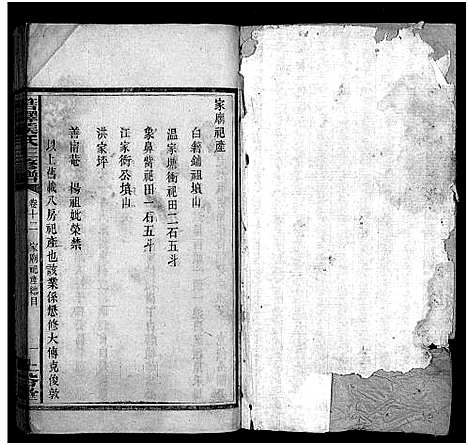 家廟祀產
白鶴鋪祖墳山
温家塘衝祀田二石五斗
象鼻嘴祀田一石五斗
江家衝公墳山
洪家坪
善南菴 楊祖妣榮禁
以上舊載八房祀產也該業係懋修大傳克俊敦
卷十二 家廟祀產總目 一